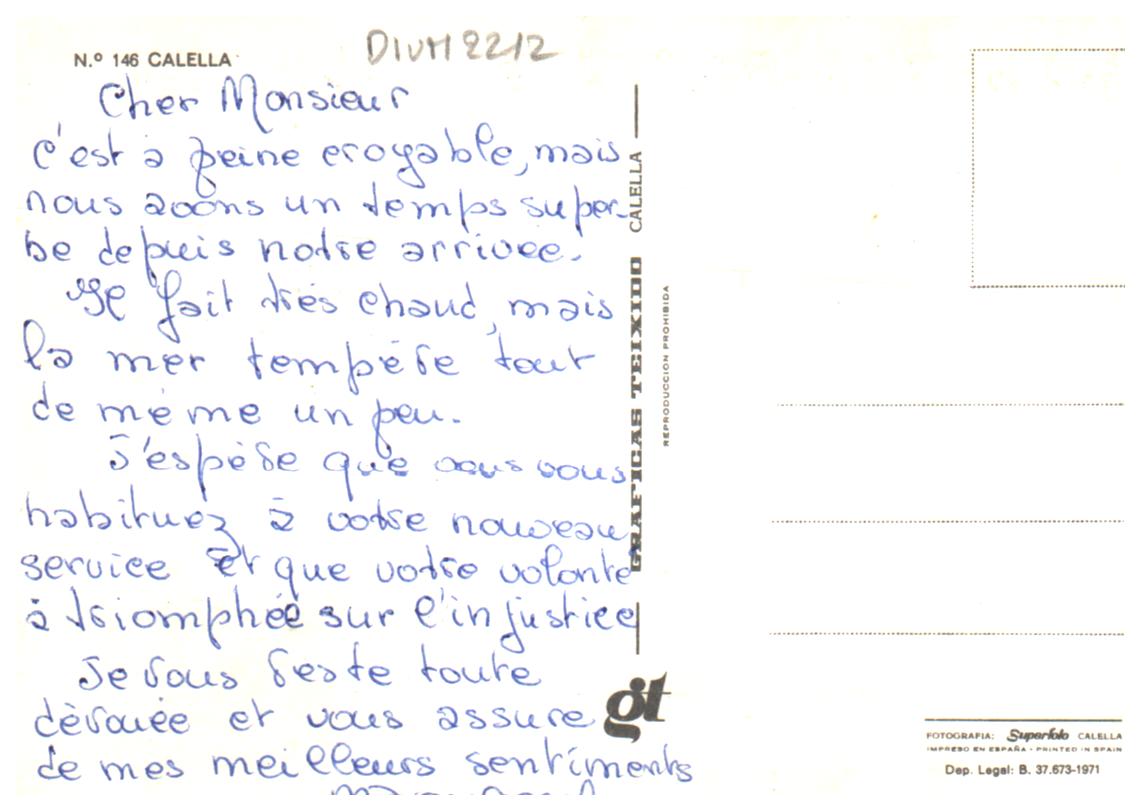 DIVM2212
N.º 146 CALELLA
Cher Monsieur
c'est à peine croyable, mais
nous avons un temps super-
be depuis notre arrivée.
Il fait très chaud, mais
la mer tempère tout
de même un peu.
J'espère que vous vous
habituez à votre nouveau
service et que votre volonté
à triomphée sur l'injustice
Je vous reste toute
dévouée et vous assure
de mes meilleurs sentiments
GRAFICAS TEIXIDO CALELLA
REPRODUCCION PROHIBIDA
gt
FOTOGRAFIA: Superfoto CALELLA
IMPRESO EN ESPAÑA - PRINTED IN SPAIN
Dep. Legal: B. 37.673-1971